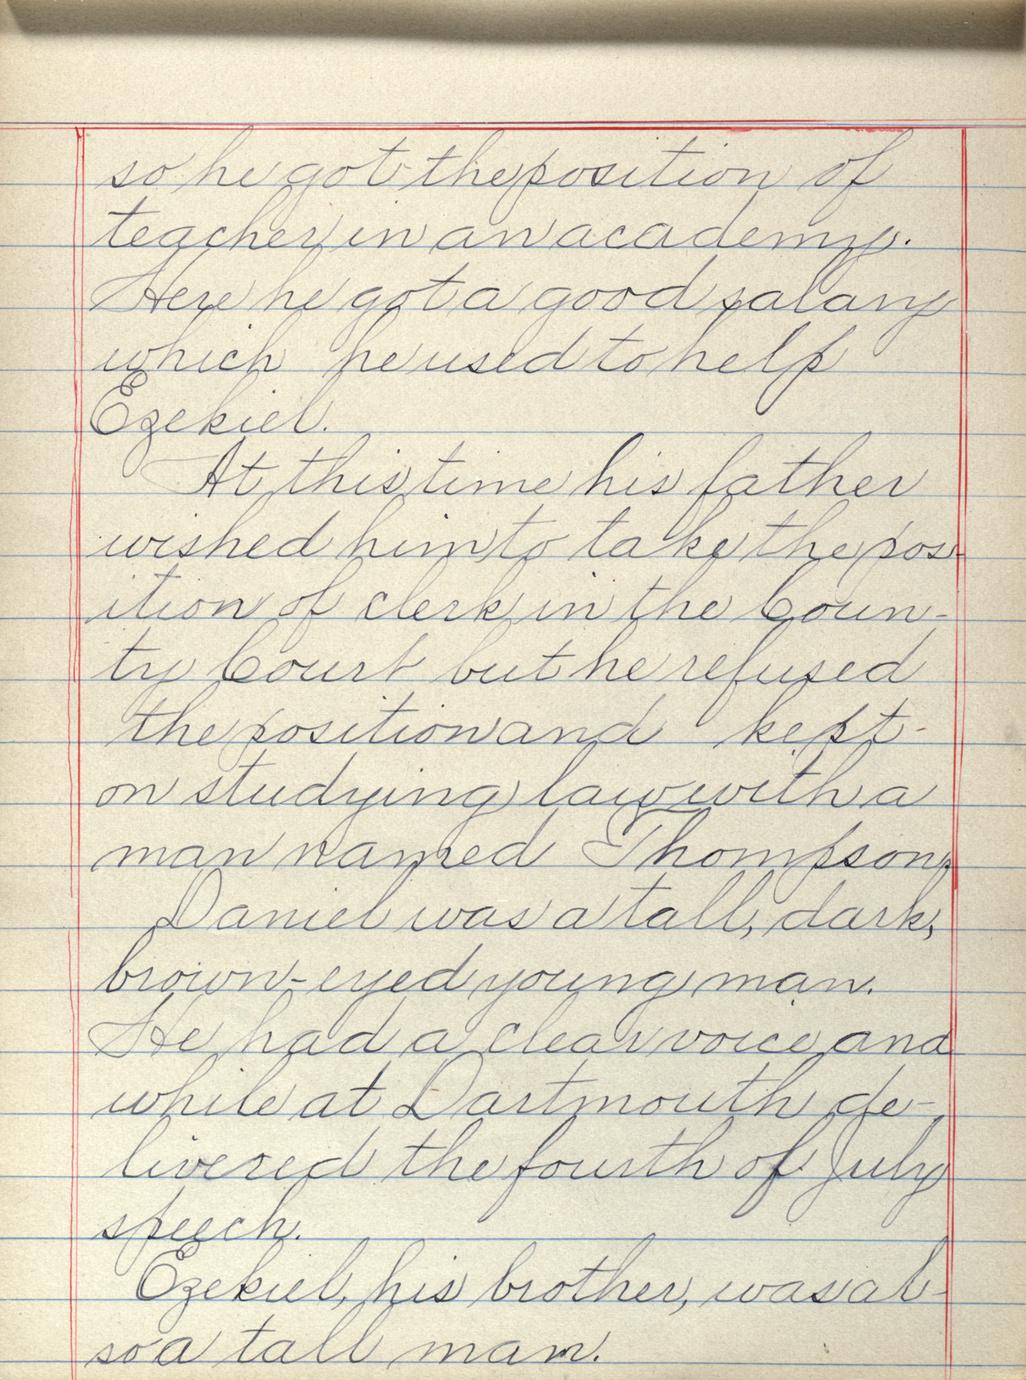 so he got the position of
teacher in an academy.
Here he got a good salary
which he used to help
Ezekiel.
At this time his father
wished him to take the pos-
ition of clerk in the Coun-
ty Court but he refused
the position and kept
on studying law with a
man named Thompson.
Daniel was a tall, dark,
brown-eyed young man.
He had a clear voice and
while at Dartmouth de-
livered the fourth of July
speech.
Ezekiel, his brother, was al-
so a tall man.